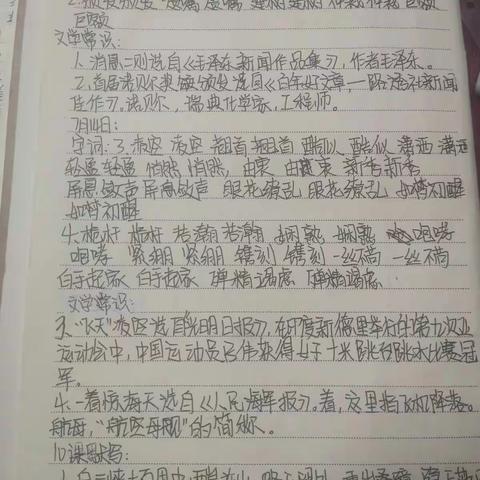 2.颁发 颁发 遗嘱 遗嘱 建树 建树 仲裁 仲裁 巨额
巨额
文学常识:
1.消息二则选自《毛泽东新闻作品集》,作者毛泽东。
2.首届诺贝尔奖颁发选自《百年好文章,——路透社新闻
佳作》。诺贝尔,瑞典化学家,工程师。
7月14日:
字词:3. 翘首 翘首 酷似 酷似 潇洒 潇洒
轻盈 轻盈 悄然 悄然, 由衷 由衷 新秀 新秀
屏息敛声 屏息敛声 眼花缭乱 眼花缭乱 如梦初醒
如梦初醒
4.桅杆 桅杆 浩瀚 浩瀚 娴熟 娴熟 咆哮
咆哮 紧绷 紧绷 镌刻 镌刻 一丝不苟 一丝不苟
白手起家 白手起家 殚精竭虑 殚精竭虑
文学常识:
3.“飞天”凌空选自《光明日报》,在印度新德里举行的第九次亚
运动会中,中国运动员吕伟获得女子十米跳台跳水比赛冠
军。
4.一着惊海天选自《人民海军报》。着,这里指飞机降落。
航母,“航空母舰”的简称。
10课默写: